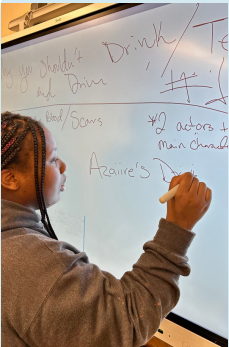 you Shouldn't Drink/Te
and Drive #
Blood/Scars *2 actors +
main charac
Azaiire's Dr